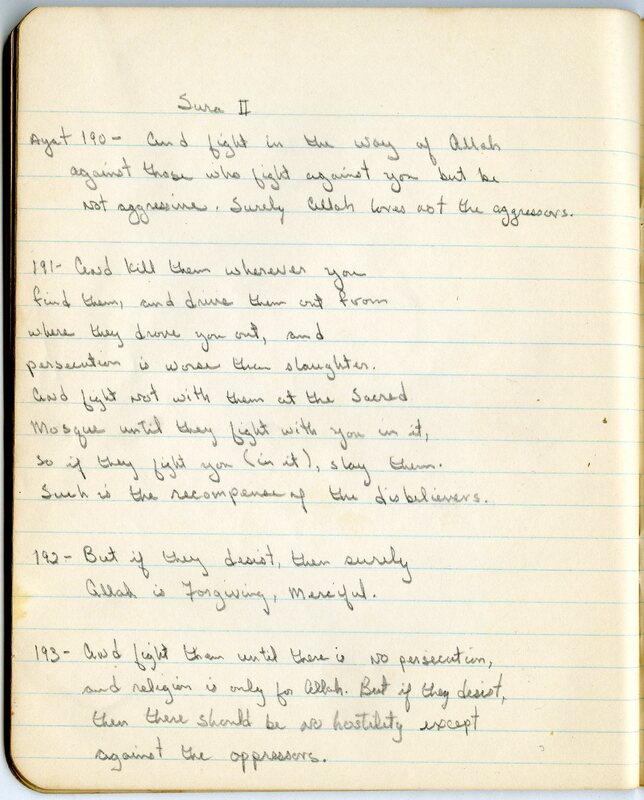 Sura II
Ayat 190- And fight in the way of Allah
against those who fight against you but be
not aggressive. Surely Allah loves not the aggressors.
191- And kill them wherever you
find them, and drive them out from
where they drove you out, and
persecution is worse than slaughter.
And fight not with them at the Sacred
Mosque until they fight with you in it,
so if they fight you (in it), slay them.
Such is the recompense of the disbelievers.
192- But if they desist, then surely
Allah is Forgiving, Merciful.
193- And fight them until there is no persecution,
and religion is only for Allah. But if they desist,
then there should be no hostility except
against the oppressors.